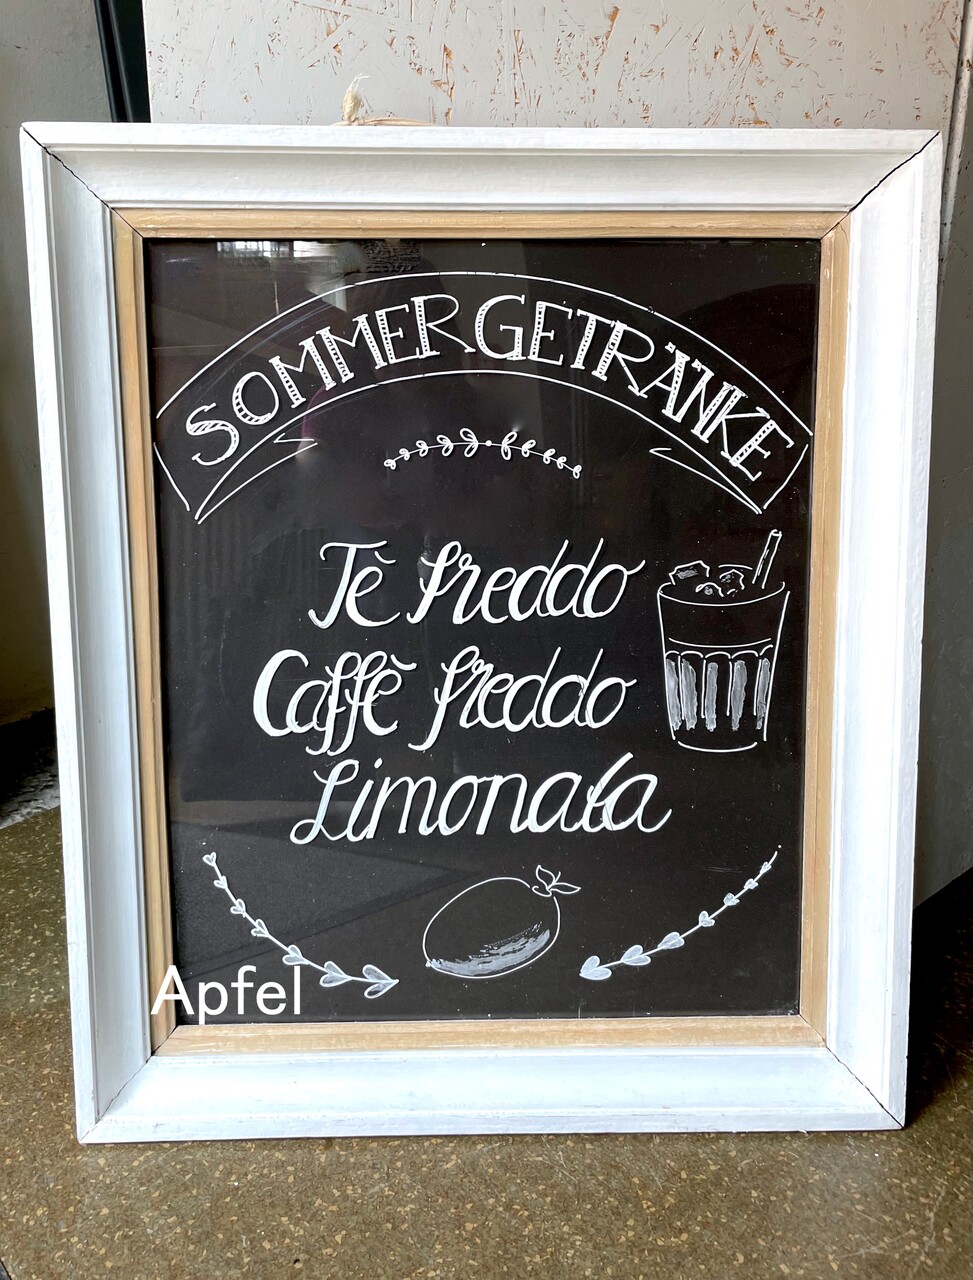 SOMMERGETRÄNKE
Tè freddo
Caffè freddo
Limonata
Apfel